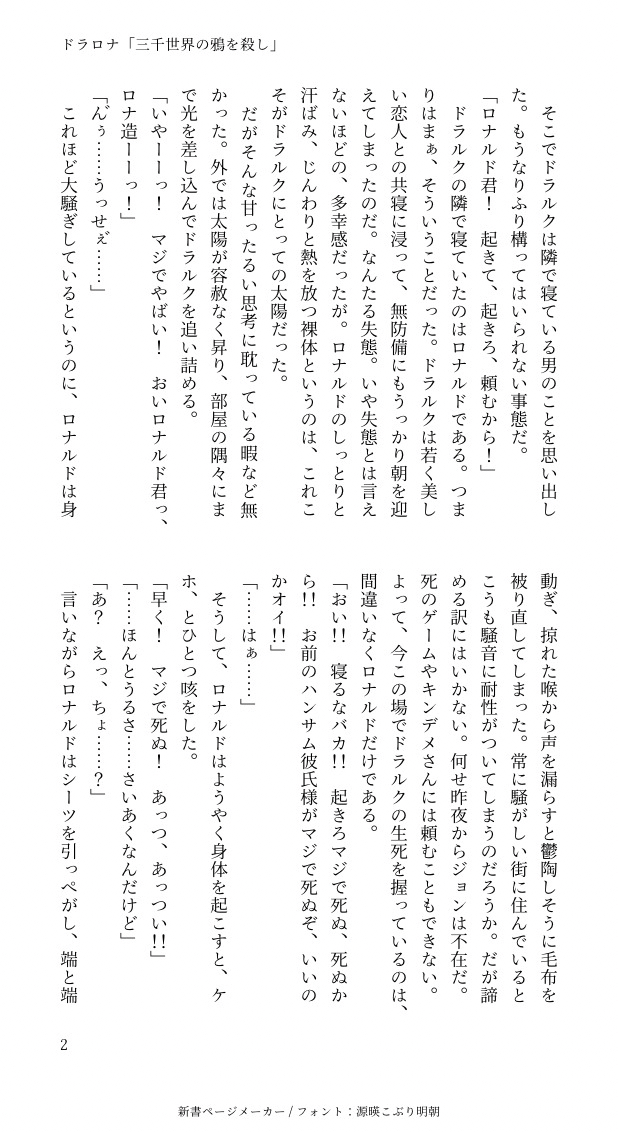 ドラロナ「三千世界の鴉を殺し」
　そこでドラルクは隣で寝ている男のことを思い出し
た。もうなりふり構ってはいられない事態だ。
「ロナルド君！　起きて、起きろ、頼むから！」
　ドラルクの隣で寝ていたのはロナルドである。つま
りはまぁ、そういうことだった。ドラルクは若く美し
い恋人との共寝に浸って、無防備にもうっかり朝を迎
えてしまったのだ。なんたる失態。いや失態とは言え
ないほどの、多幸感だったが。ロナルドのしっとりと
汗ばみ、じんわりと熱を放つ裸体というのは、これこ
そがドラルクにとっての太陽だった。
　だがそんな甘ったるい思考に耽っている暇など無
かった。外では太陽が容赦なく昇り、部屋の隅々にま
で光を差し込んでドラルクを追い詰める。
「いやーーっ！　マジでやばい！　おいロナルド君っ、
ロナ造ーーっ！」
「ん゙ぅ……うっせぇ゙……」
　これほど大騒ぎしているというのに、ロナルドは身
動ぎ、掠れた喉から声を漏らすと鬱陶しそうに毛布を
被り直してしまった。常に騒がしい街に住んでいると
こうも騒音に耐性がついてしまうのだろうか。だが諦
める訳にはいかない。何せ昨夜からジョンは不在だ。
死のゲームやキンデメさんには頼むこともできない。
よって、今この場でドラルクの生死を握っているのは、
間違いなくロナルドだけである。
「おい!!　寝るなバカ!!　起きろマジで死ぬ、死ぬか
ら!!　お前のハンサム彼氏様がマジで死ぬぞ、いいの
かオイ!!」
「……はぁ……」
　そうして、ロナルドはようやく身体を起こすと、ケ
ホ、とひとつ咳をした。
「早く！　マジで死ぬ！　あっつ、あっつい!!」
「……ほんとうるさ……さいあくなんだけど」
「あ？　えっ、ちょ……？」
　言いながらロナルドはシーツを引っぺがし、端と端
2
新書ページメーカー / フォント：源暎こぶり明朝